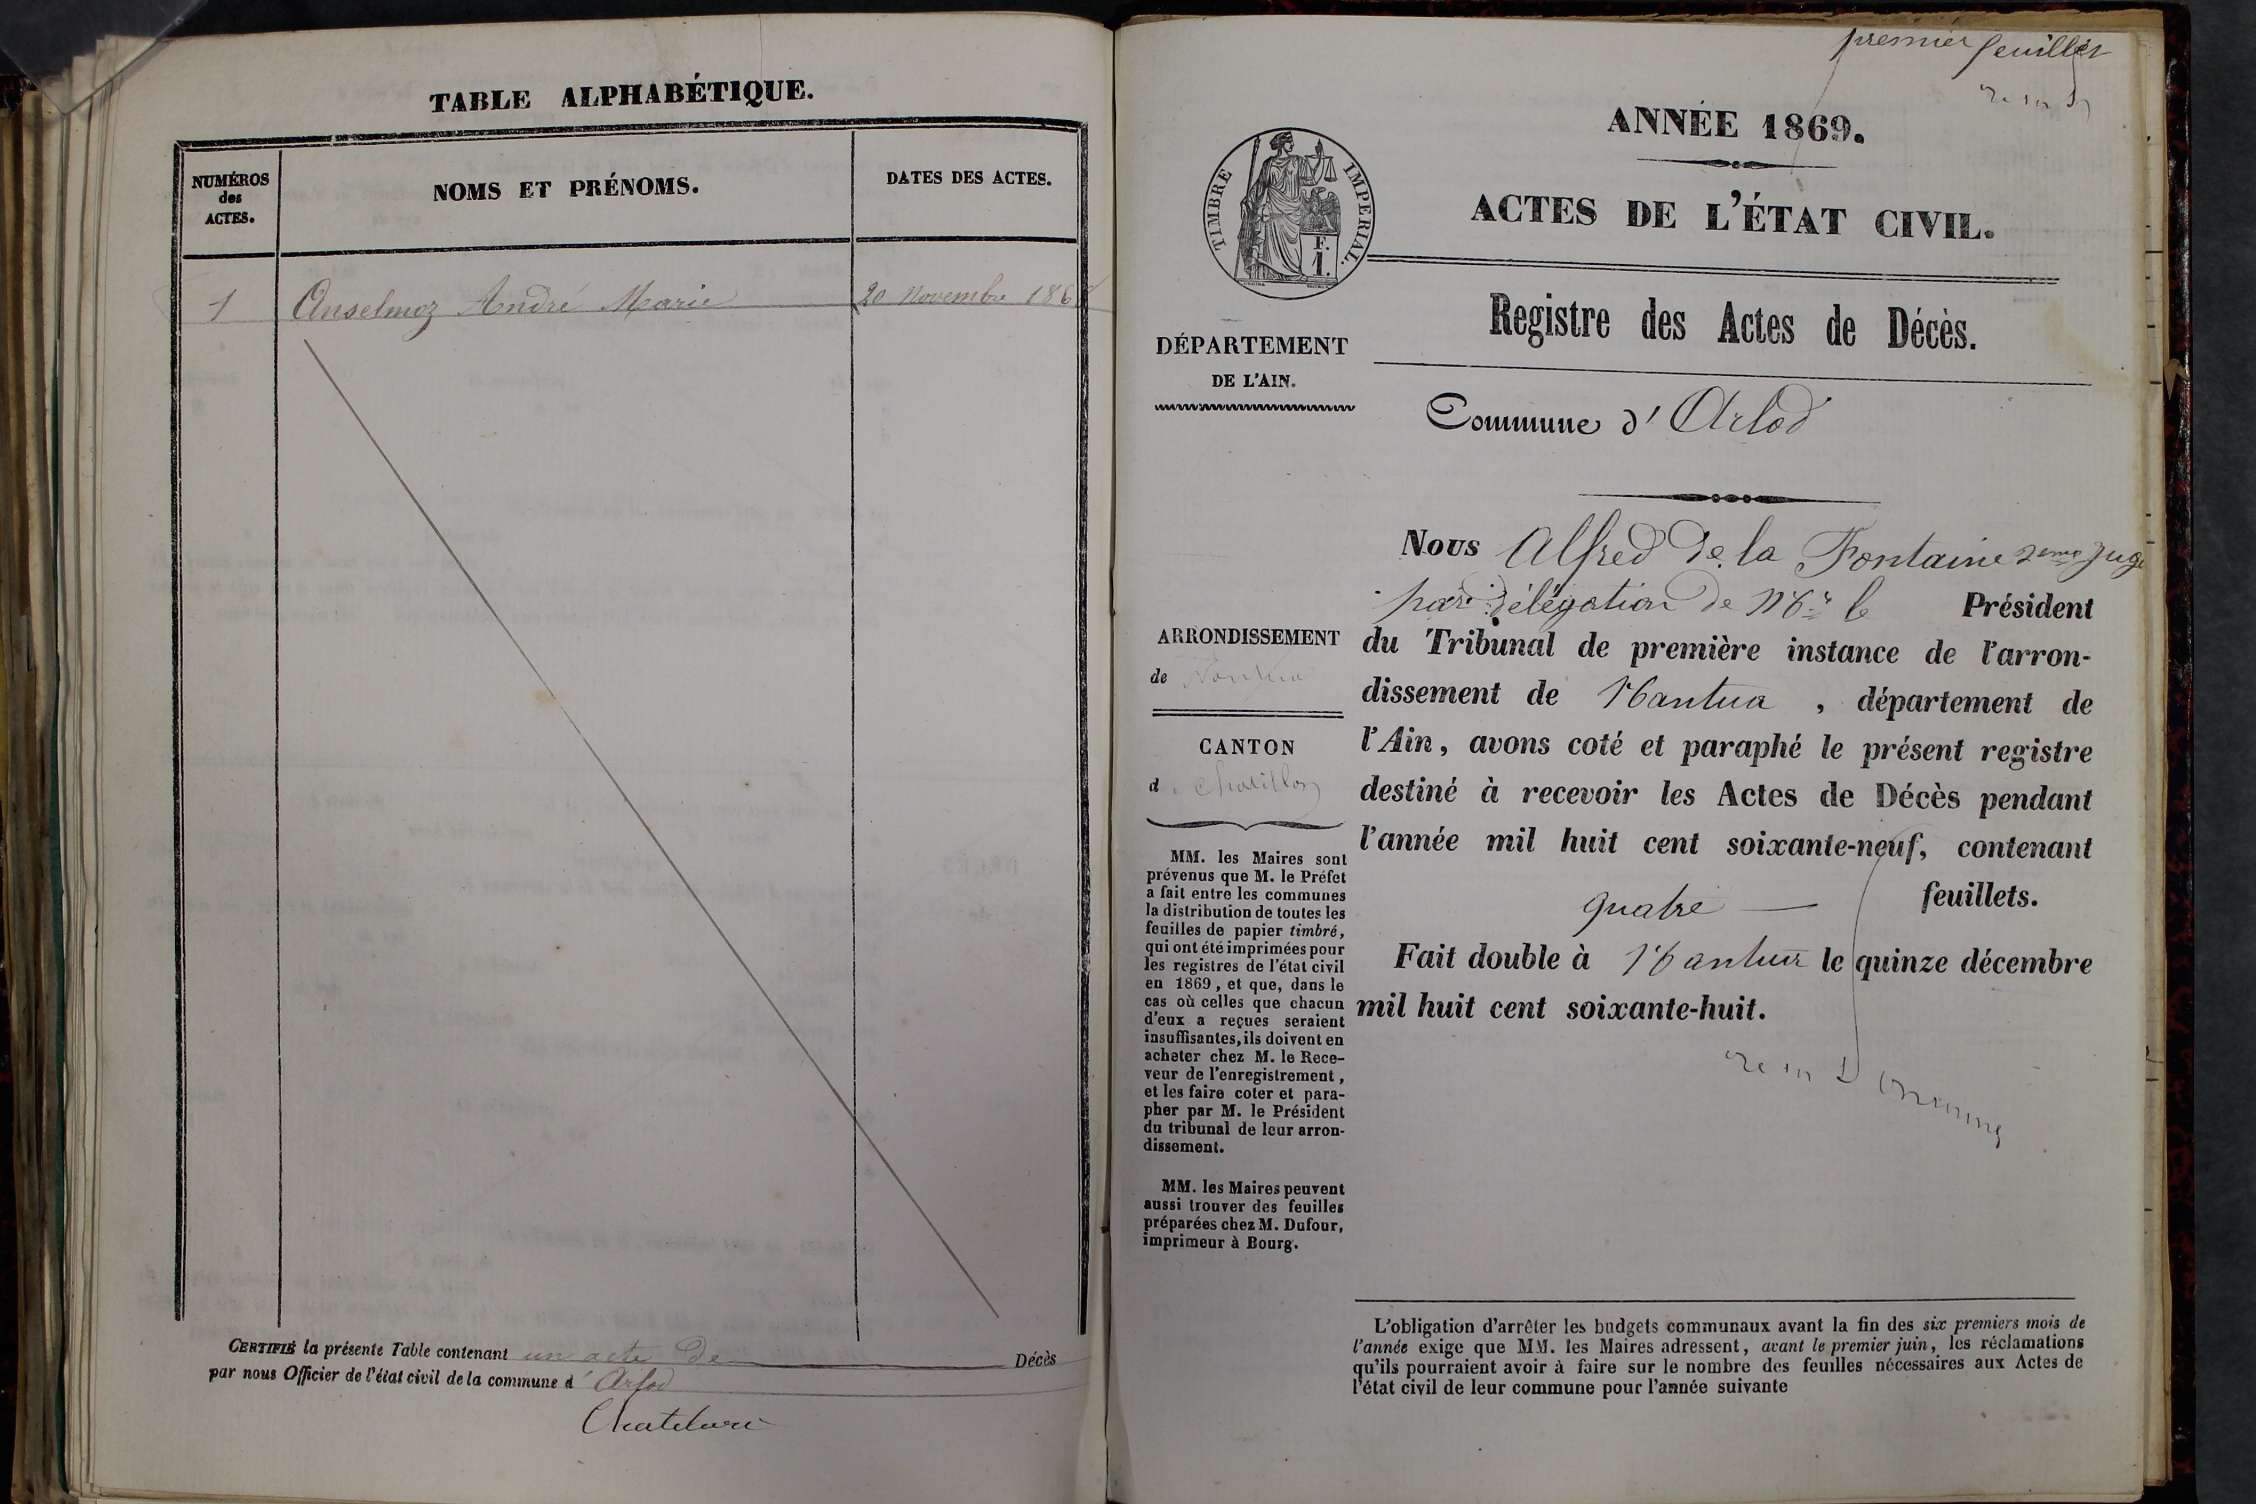 TABLE ALPHABÉTIQUE.
NUMÉROS
des
ACTES.
NOMS ET PRÉNOMS.
DATES DES ACTES.
1 Anselmoz André Marie 20 Novembre 186
CERTIFIÉ la présente Table contenant un acte de Décès
par nous Officier de l'état civil de la commune d' Arlod
premier feuillet
ANNÉE 1869.
TIMBRE IMPERIAL.
F.
1.
ACTES DE L'ÉTAT CIVIL.
Registre des Actes de Décès.
DÉPARTEMENT
DE L'AIN.
Commune d' Arlod
Nous Alfred de la Fontaine 2eme juge
par délégation de Mr le Président
du Tribunal de première instance de l'arron-
dissement de Nantua, département de
l'Ain, avons coté et paraphé le présent registre
destiné à recevoir les Actes de Décès pendant
l'année mil huit cent soixante-neuf, contenant
quatre — feuillets.
Fait double à Nantua le quinze décembre
mil huit cent soixante-huit.
ARRONDISSEMENT
de Nantua
CANTON
d Chatillon
MM. les Maires sont
prévenus que M. le Préfet
a fait entre les communes
la distribution de toutes les
feuilles de papier timbré,
qui ont été imprimées pour
les registres de l'état civil
en 1869, et que, dans le
cas où celles que chacun
d'eux a reçues seraient
insuffisantes, ils doivent en
acheter chez M. le Rece-
veur de l'enregistrement,
et les faire coter et para-
pher par M. le Président
du tribunal de leur arron-
dissement.
MM. les Maires peuvent
aussi trouver des feuilles
préparées chez M. Dufour,
imprimeur à Bourg.
L'obligation d'arrêter les budgets communaux avant la fin des six premiers mois de
l'année exige que MM. les Maires adressent, avant le premier juin, les réclamations
qu'ils pourraient avoir à faire sur le nombre des feuilles nécessaires aux Actes de
l'état civil de leur commune pour l'année suivante